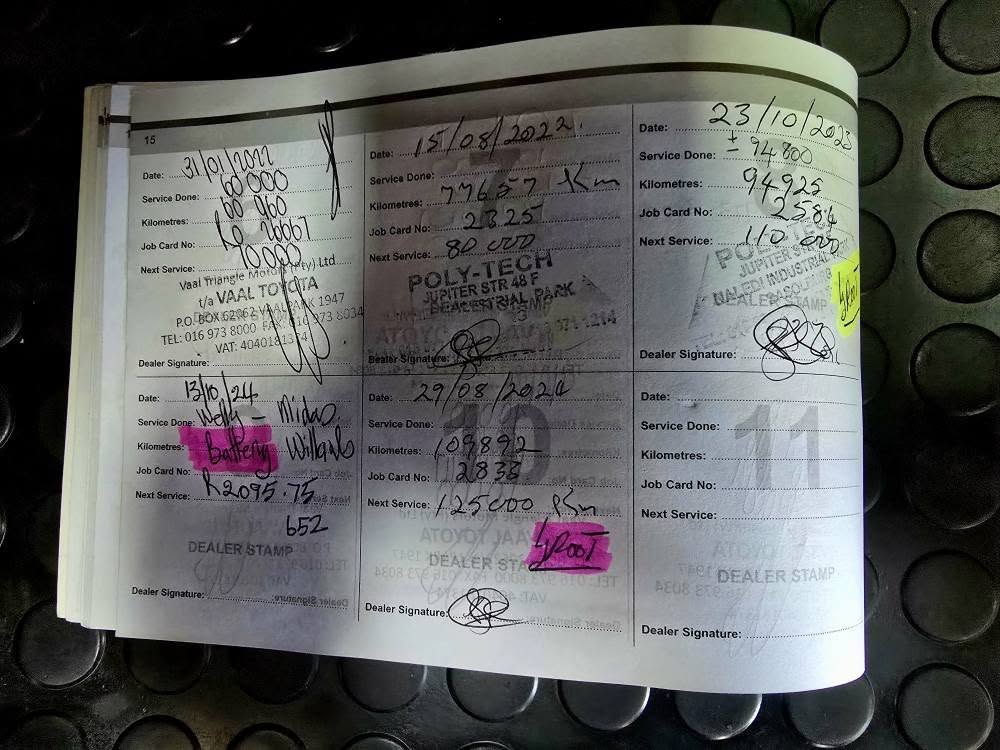 15
Date: 31/01/2022
Service Done: 60 000
Kilometres: 60 960
Job Card No:
Next Service: 70 000
Vaal Triangle Motors (Pty) Ltd
t/a VAAL TOYOTA
P.O. BOX 62962 VAALPARK 1947
TEL: 016 973 8000 FAX: 016 973 8034
VAT:
Dealer Signature:
Date: 15/08/2022
Service Done:
Kilometres: 77657 Km
Job Card No: 2325
Next Service: 80 000
POLY-TECH
JUPITER STR 48 F
DEALER STAMP
PARK
Dealer Signature:
Date: 23/10/2023
Service Done: ± 94 800
Kilometres: 94925
Job Card No: 2584
Next Service: 110 000
POLY-TECH
JUPITER
NALEDI INDUSTRIAL
DEALER STAMP
Dealer Signature:
Date: 13/10/24
Service Done: Welly - Midas
Kilometres: Battery Willards
Job Card No:
Next Service: R2095.75
652
DEALER STAMP
Dealer Signature:
10
Date: 29/08/2024
Service Done:
Kilometres: 109892
Job Card No: 2833
Next Service: 125000 Km
DEALER STAMP
Dealer Signature:
11
Date:
Service Done:
Kilometres:
Job Card No:
Next Service:
DEALER STAMP
Dealer Signature: